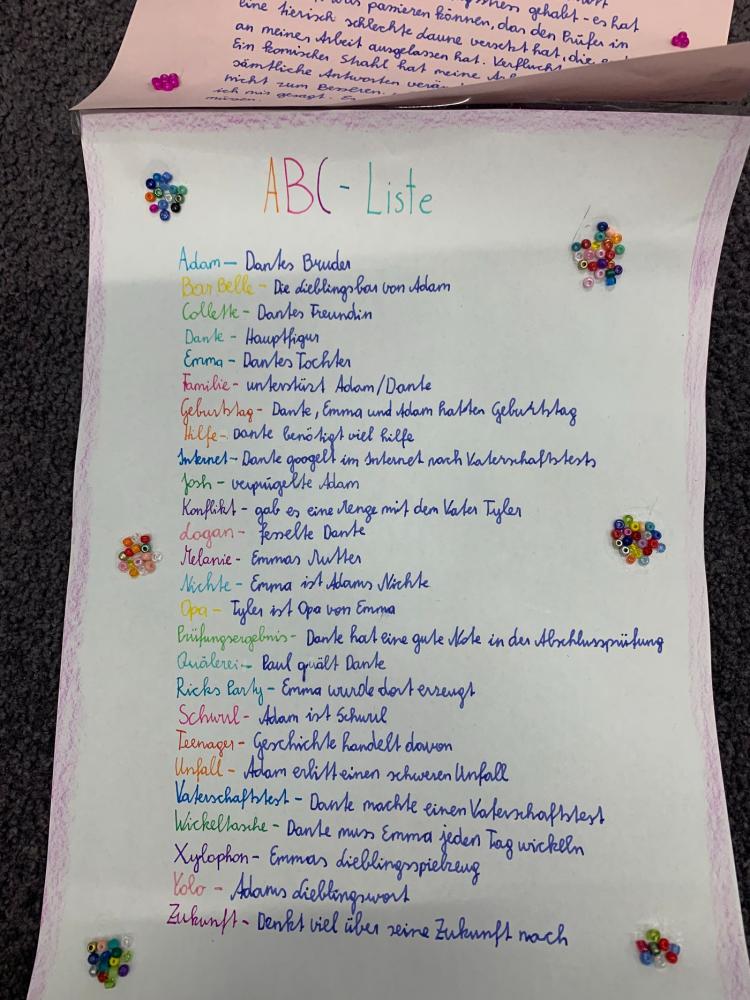 gehabt - es hat
was passieren können, das den Prüfer in
eine tierisch schlechte Laune versetzt hat, die
an meiner Arbeit ausgelassen hat. Verflucht
Ein komischer Strahl hat meine
sämtliche Antworten
nicht zum Besseren.
ich mir gesagt.
müssen.
ABC - Liste
Adam — Dantes Bruder
Bar Belle - Die Lieblingsbar von Adam
Collette - Dantes Freundin
Dante - Hauptfigur
Emma - Dantes Tochter
Familie - unterstüzt Adam/Dante
Geburtstag - Dante, Emma und Adam hatten Geburtstag
Hilfe - Dante benötigt viel hilfe
Internet - Dante googelt im Internet nach Vaterschaftstests
Josh - verprügelte Adam
Konflikt - gab es eine Menge mit dem Vater Tyler
Logan - fesselte Dante
Melanie - Emmas Mutter
Nichte - Emma ist Adams Nichte
Opa - Tyler ist Opa von Emma
Prüfungsergebnis - Dante hat eine gute Note in der Abschlussprüfung
Quälerei - Paul quält Dante
Ricks Party - Emma wurde dort erzeugt
Schwul - Adam ist Schwul
Teenager - Geschichte handelt davon
Unfall - Adam erlitt einen schweren Unfall
Vaterschaftstest - Dante machte einen Vaterschaftstest
Wickeltasche - Dante muss Emma jeden Tag wickeln
Xylophon - Emmas Lieblingsspielzeug
Yolo - Adams Lieblingswort
Zukunft - Denkt viel über seine Zukunft nach